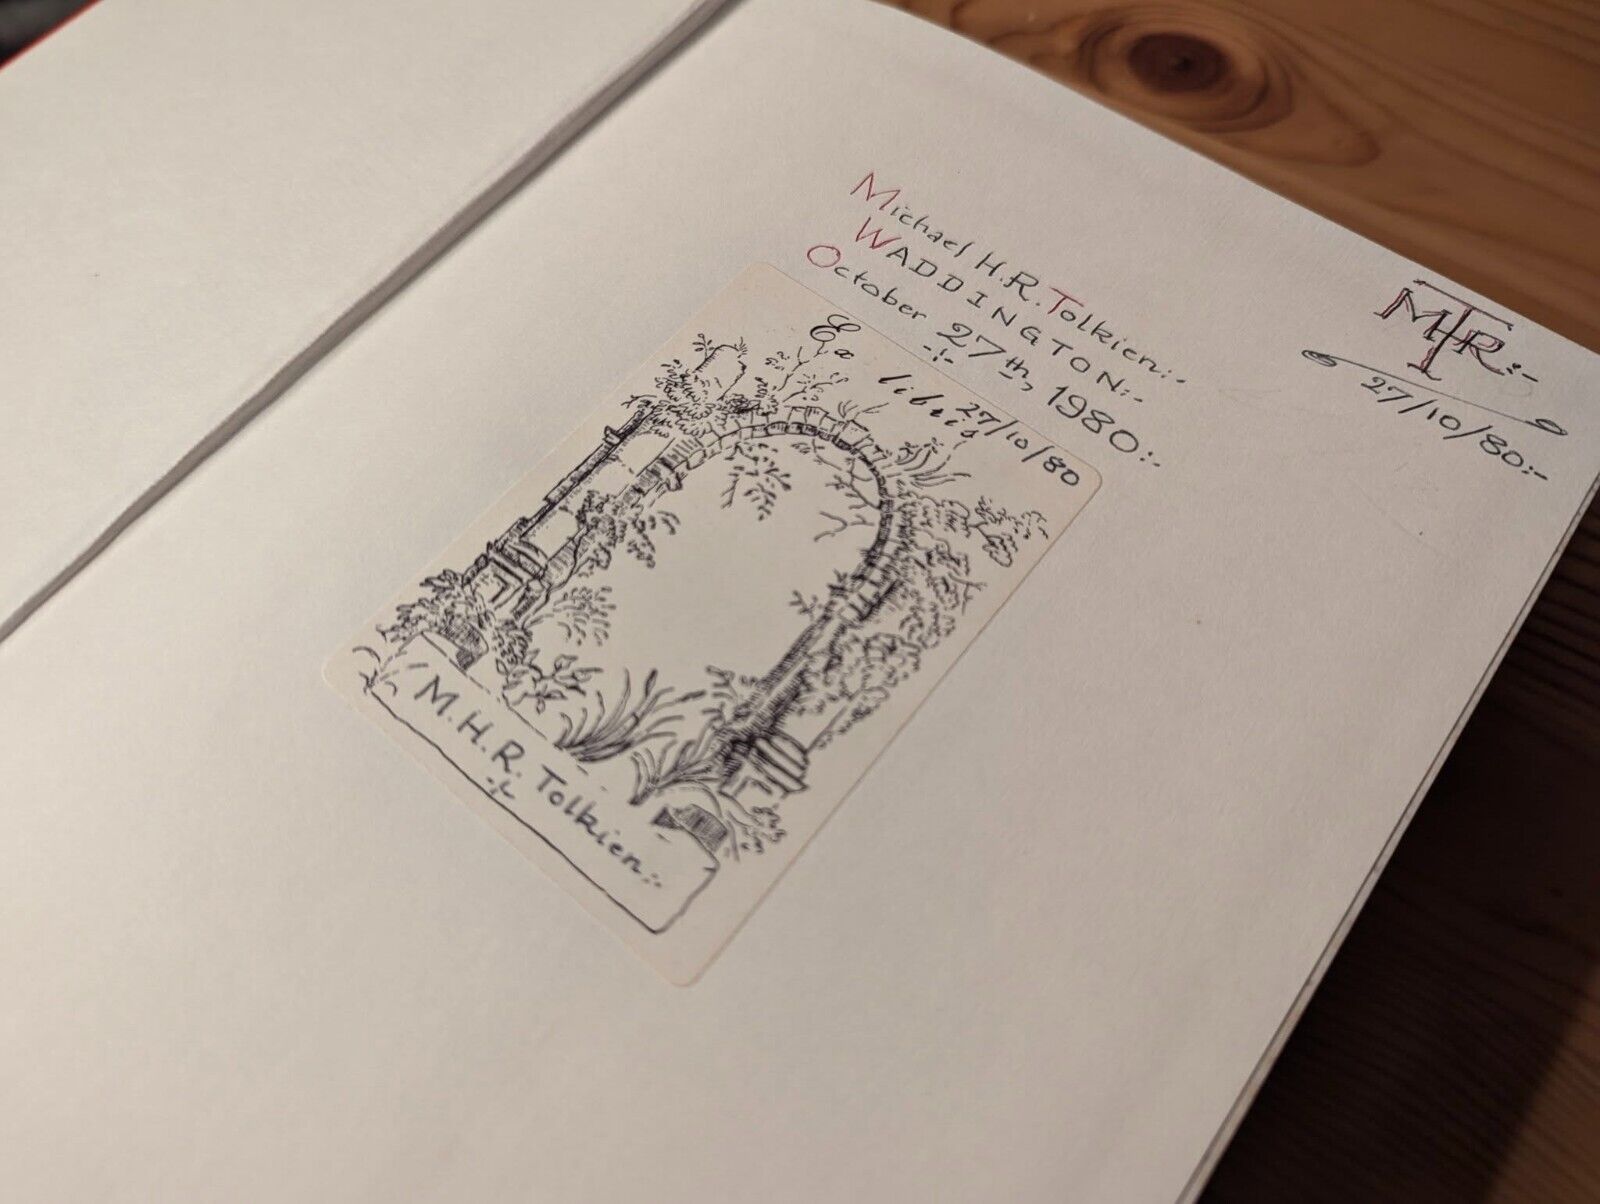 Michael H.R. Tolkien:-
WADDINGTON:-
October 27th, 1980:-
MHRT:-
27/10/80:-
Ex libris
27/10/80
M.H.R. Tolkien:-